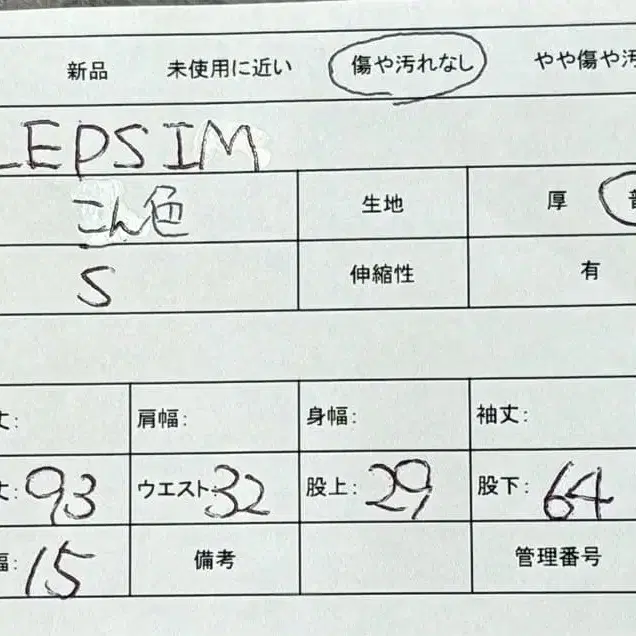 新品 未使用に近い 傷や汚れなし やや傷や汚
LEPSIM
こん色 生地 厚
S 伸縮性 有
丈: 肩幅: 身幅: 袖丈:
丈: 93 ウエスト 32 股上: 29 股下: 64
幅: 15 備考 管理番号